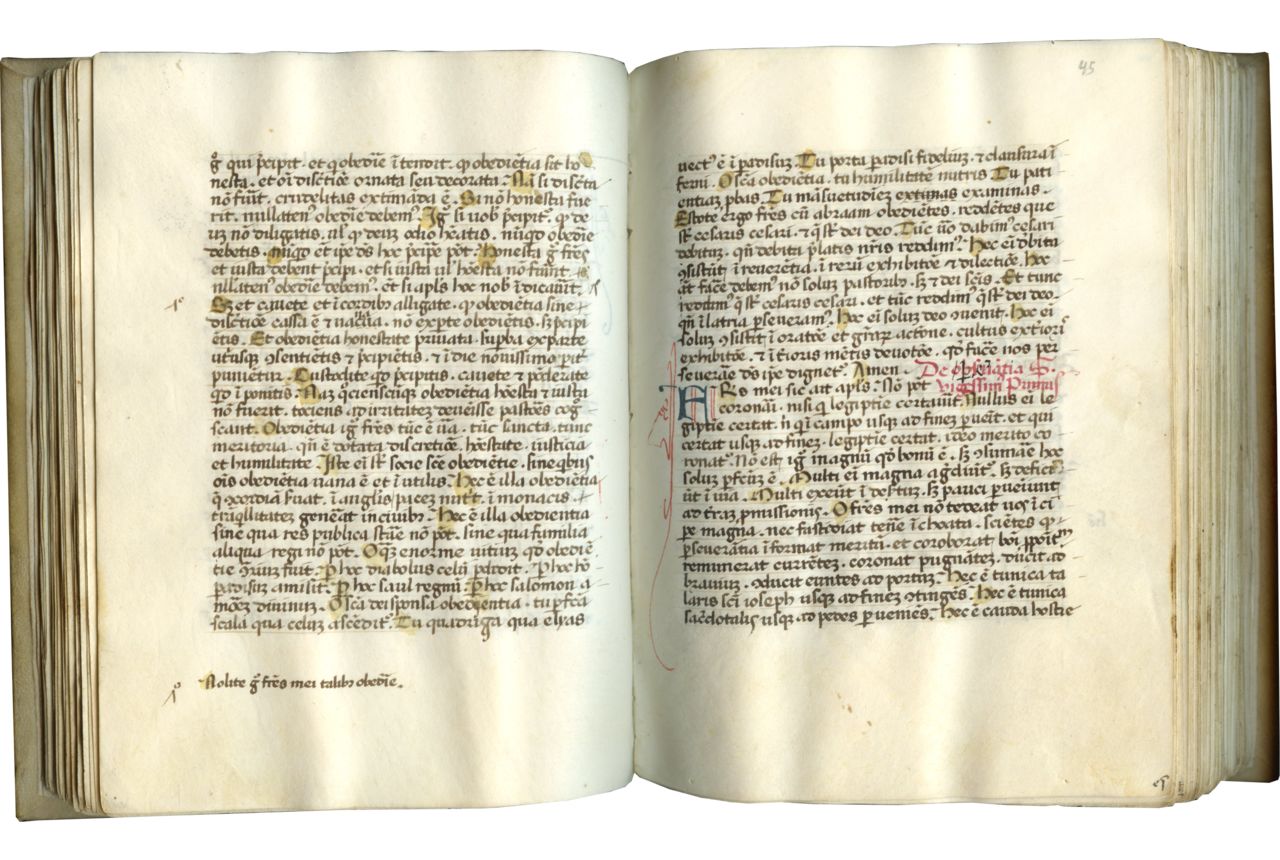 g̃ qui p̃cipit . et q̨ obediẽ ĩ tenort . ꝙ obediẽtia sit ho
nesta . et oĩ discrẽtiõe ornata seu decorata . Nã si discr̃ta
nõ fũnt . crudelitas extimãda ẽ . Si nõ honesta fue
rit . nullaten⁹ obediẽ debem⁹ . Ig̃ si uob̃ p̃cipit⁹ . ꝙ de
uꝫ nõ diligatis . ul̃ ꝙ deuꝫ odio hẽatis . nũqd obediẽ
debetis . nũqd et̃ ip̃e dñs hoc p̃cip̃e põt . Honesta g̃ fr̃es
et iusta debent p̃cipi . et si iusta ul̃ hõesta nõ fũnt .
nullaten⁹ obediẽ debem⁹ . et̃ si apl̃s hoc nob̃ ĩdicauit .
Sꝫ et cauete et ĩ cordibꝫ alligate . ꝙ obediẽtia sine
discr̃tiõe cassa ẽ ⁊ uacua . nõ exp̃te obediẽtis . sꝫ p̃cipi
ẽtis . Et obediẽtia honestate priuata . sup̃ba ex parte
ut̃usqꝫ ꝯsentiẽtis ⁊ p̃cipiẽtis . ⁊ ĩ die nouissimo pit̃
punietur . Custodite qd p̃cipitis . cauete ⁊ põderate
qd ĩponitis . Naꝫ q̊ciẽscũqꝫ obediẽtia hõesta ⁊ iusta
nõ fuerit . tociens ad irritãtez deuẽisse pastões cog
scant . Obediẽtia ig̃ fr̃es tũc ẽ ũa . tũc sancta . tunc
meritoria . qñ ẽ dotata discretiõe . hõestate . iusticia
et humilitate . Iste eĩ sẽ socie scẽ obediẽtie . sine qbus
oĩs obediẽtia uana ẽ et ĩ utilis . Hec ẽ illa obediẽtia
q̨ ꝯcordiã seruat . ĩ anglis pacez nutt . ĩ monacis .
trãq̃llitatez gen̉eat in ciuibꝫ . Hec ẽ illa obedientia
sine qua res publica stãe nõ põt . sine qua familia
aliqua regi nõ põt . Oq̃ enorme uitiuꝫ qd obediẽ
tie ꝯ̃iuꝫ fuit . P̃ hoc diabolus celũ p̃didit . P̃ hoc hõ
padisuꝫ amisit . P̃ hoc saul regnũ . P̃ hoc salomon a
mõez diuinuꝫ . O sc̃a dei sponsa obedientia . tu p̃fc̃a
scala qua celuꝫ ascẽdit⁹ . Tu quadriga qua elyas
Nolite g̃ fr̃es mei talibꝫ obediẽ .
45
uect⁹ ẽ ĩ padisuꝫ . Tu porta padisi fideliuꝫ . ⁊ clausura ĩ
ferni . O sc̃a obediẽtia . tu humilitatẽ nutris Tu pati
entiaꝫ p̃bas . Tu mãsuetudiẽz extimas examinas .
Estote ergo fr̃es cũ abraam obediẽtes . reddẽtes que
st̃ cesaris cesari . ⁊ q̃ st̃ dei deo . Tũc ũo dabim⁹ cesari
debituꝫ . qñ debita p̃latis nr̃is reddim⁹ . Hec eĩ d̃bita
ꝯsistũt ĩ reuerẽtia . ĩ rerũ exhibitõe ⁊ dilectiõe . Hoc
aũt fac̃e debem⁹ nõ soluꝫ pastoribꝫ . sꝫ ⁊ dei sc̃is . Et tunc
reddim⁹ q̃ st̃ cesaris cesari . et tũc reddim⁹ q̃ st̃ dei deo .
qñ ĩ latria p̃seueram⁹ . Hoc eĩ soluꝫ deo ꝯuenit . Hoc eĩ
soluꝫ ꝯsistit ĩ oratõe et gr̃aꝝ actõne . cultus extĩori⁹
exhibitõe . ⁊ ĩt̃ioris mẽtis deuotõe . qd fac̃e nos per
seuerãe dñs ip̃e dignet⁹ . Amen . De op̃seuãtia S.
FRs mei sic ait apl̃s . Nõ põt vigesim̃ Primus
coronãi . nisi q̨ legiptie certauĩt . Nullus eĩ le
giptie certat . ñ qi ĩ campo usqꝫ ad finez p̃uẽit . et qui
certat usqꝫ ad finez . legiptie certat . ideo merito co
ronat⁹ . Nõ est ig̃ magnũ qd bonũ ẽ . sꝫ ꝯsumãe hoc
soluꝫ p̃fectũ ẽ . Multi eĩ magna ag̃diũt⁹ . sꝫ deficĩ
ũt ĩ uia . Multi exeũt ĩ desertuꝫ . sꝫ pauci p̃ueĩunt
ad t̃raꝫ p̃missionis . O fr̃es mei nõ tedeat uos ĩ ci
pe magna . nec fastidiat tenẽe ĩchoata . scientes ꝙ
p̃seuerãtia ĩformat meritũ . et coroborat boĩ p̃poĩtu
remunerat currẽtez . coronat pugnãtez . ducit ad
brauiuꝫ . ꝯducit euntes ad portuꝫ . Hec ẽ tunica ta
laris sc̃i ioseph usqꝫ ad finez ꝯtingẽs . Hec ẽ tunica
sacerdotalis usqꝫ ad pedes p̃ueniẽs . Hec ẽ cauda hostie